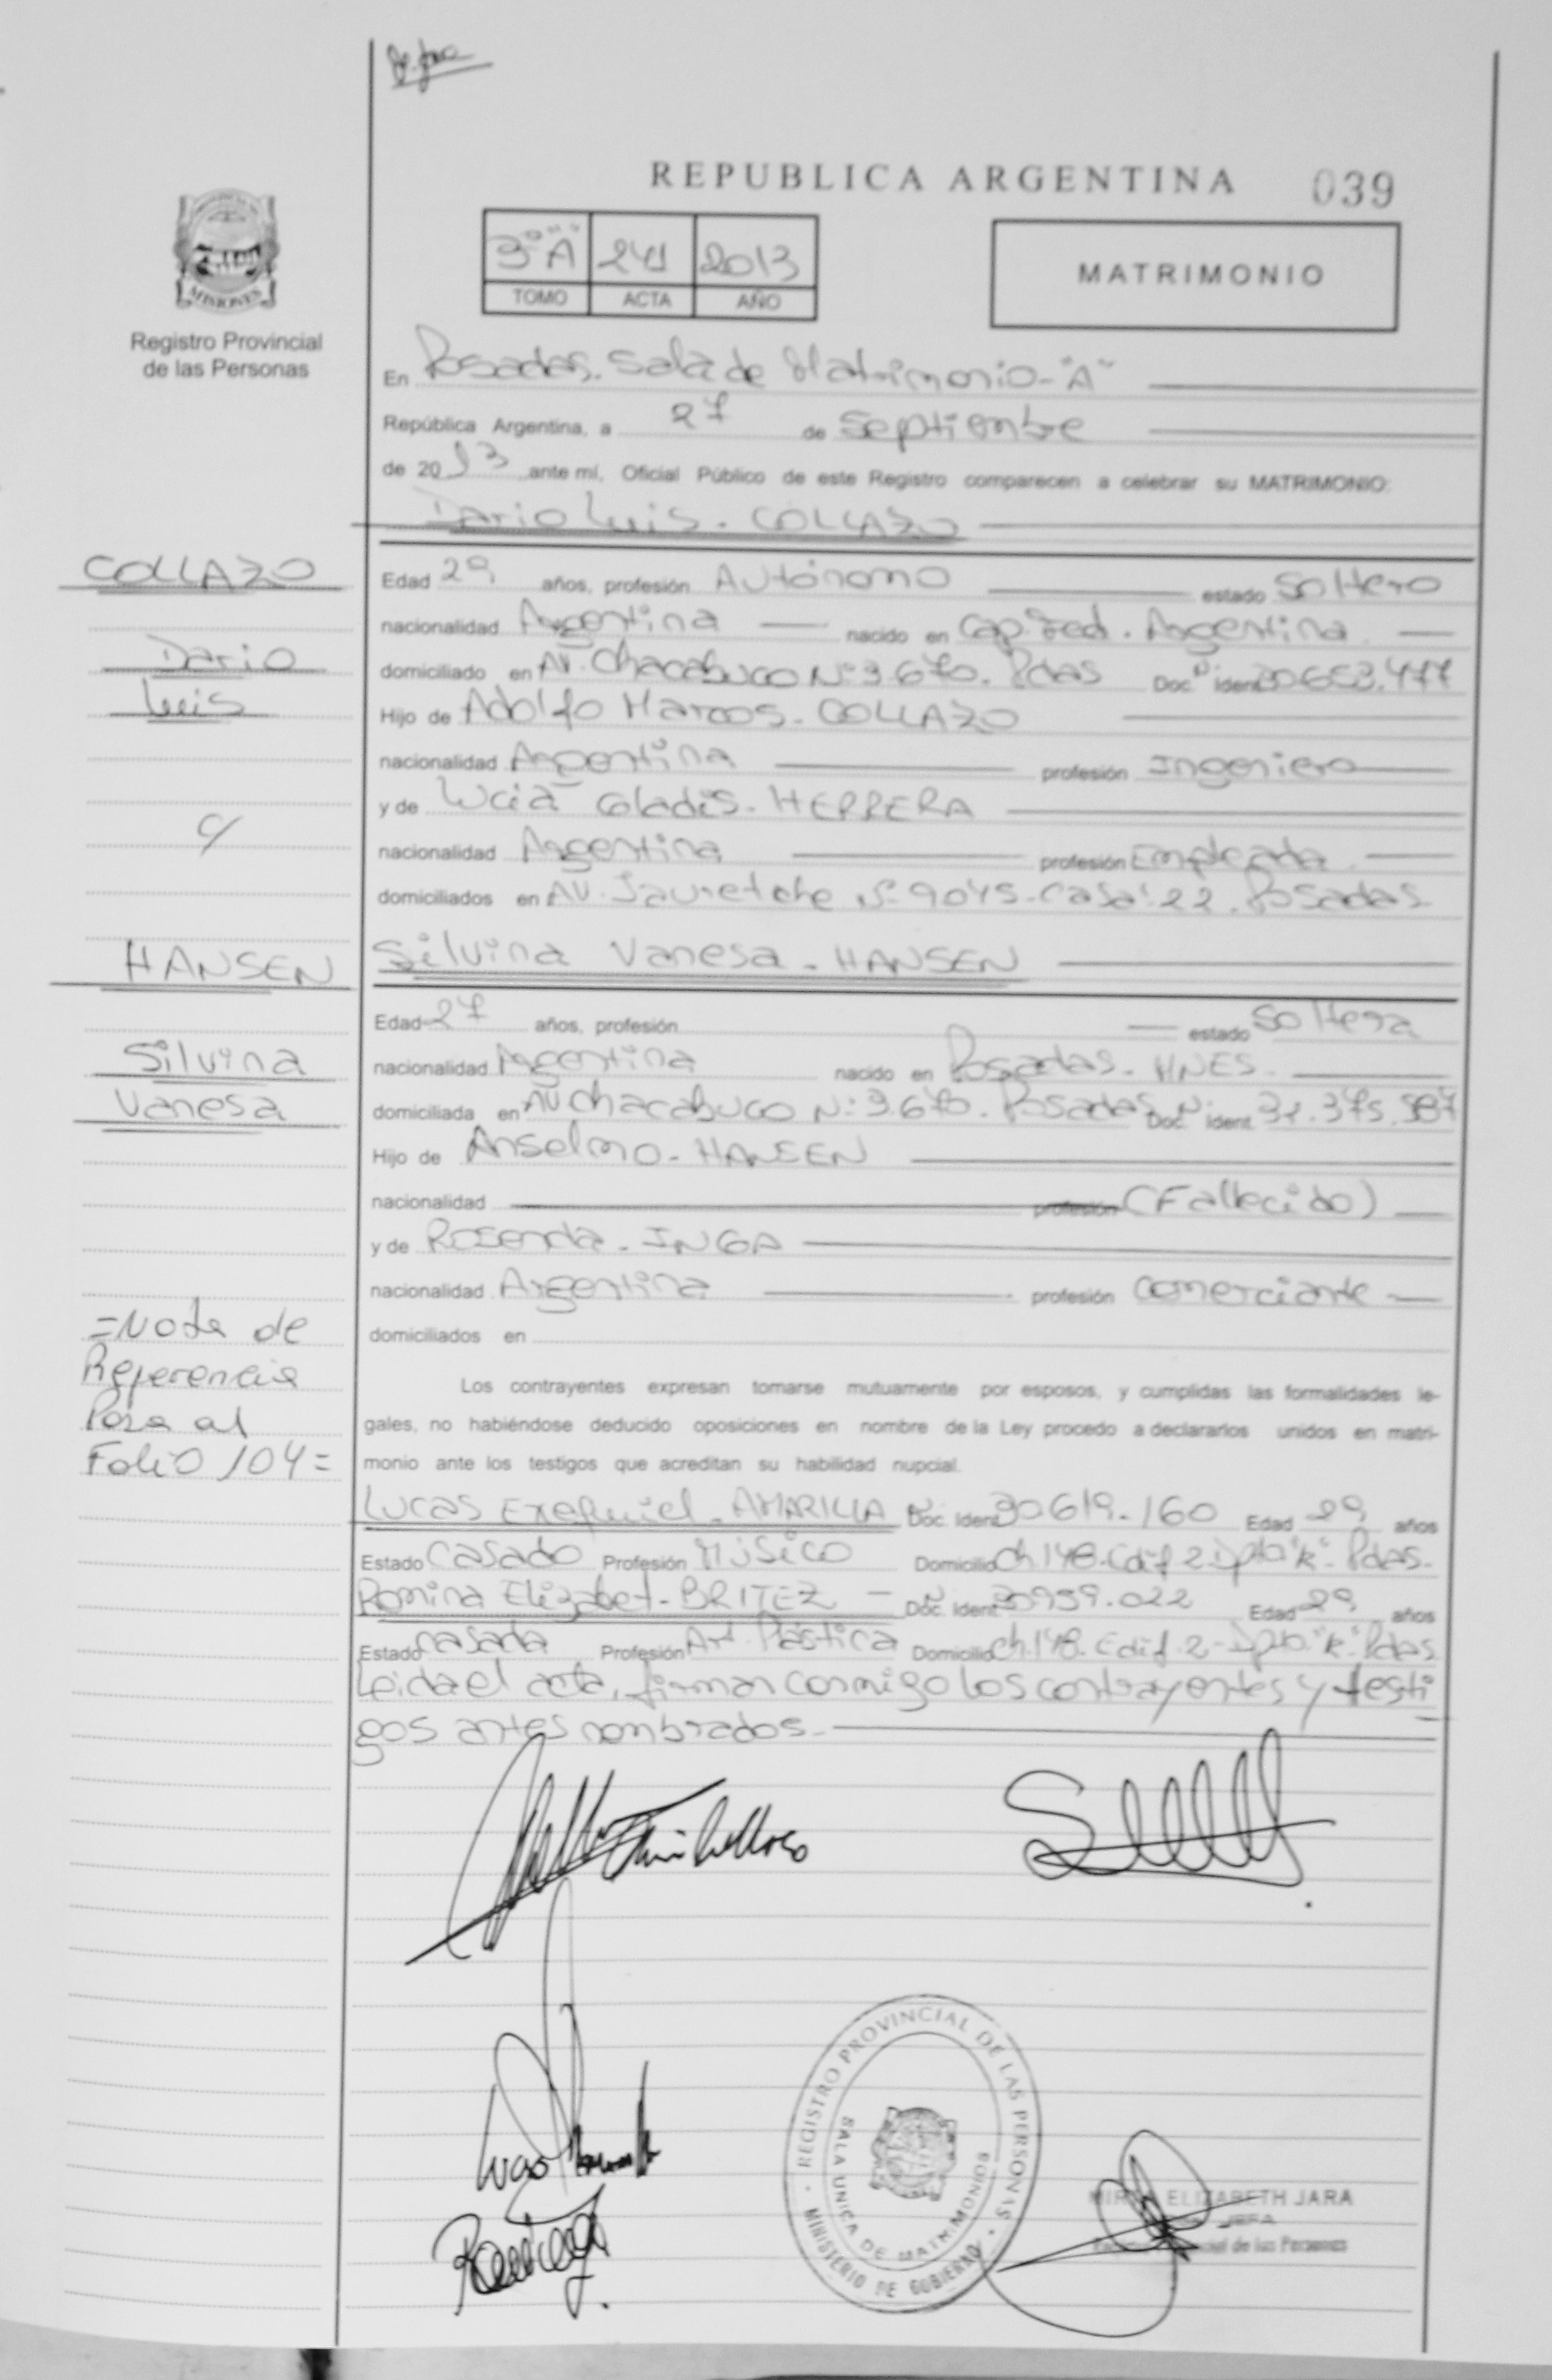 REPUBLICA ARGENTINA 039
3º "A" 241 2013
TOMO ACTA AÑO
MATRIMONIO
MISIONES
Registro Provincial
de las Personas
En Posadas. Sala de Matrimonio-"A"
República Argentina, a 27 de Septiembre
de 2013 ante mí, Oficial Público de este Registro comparecen a celebrar su MATRIMONIO:
Dario Luis. COLLAZO
COLLAZO
Dario
Luis
c/
HANSEN
Silvina
Vanesa
Edad 29 años, profesión Autónomo estado Soltero
nacionalidad Argentina nacido en Cap. Fed. Argentina
domiciliado en AV. Chacabuco Nº 3.670. Pdas Doc. Ident. 30.653.477
Hijo de Adolfo Marcos. COLLAZO
nacionalidad Argentina profesión Ingeniero
y de Lucia Gladis. HERRERA
nacionalidad Argentina profesión Empleada
domiciliados en AV. Jauretche Nº 9045-Casa: 22. Posadas
Silvina Vanesa. HANSEN
Edad 27 años, profesión estado Soltera
nacionalidad Argentina nacido en Posadas. MNES.
domiciliada en AV Chacabuco Nº 3.670. Posadas Doc. Ident.
Hijo de Anselmo. HANSEN
nacionalidad profesión (Fallecido)
y de Rosenda. INGA
nacionalidad Argentina profesión Comerciante
domiciliados en
=Nota de
Referencia
Pasa al
Folio 104=
Los contrayentes expresan tomarse mutuamente por esposos, y cumplidas las formalidades le-
gales, no habiéndose deducido oposiciones en nombre de la Ley procedo a declararlos unidos en matri-
monio ante los testigos que acreditan su habilidad nupcial.
Lucas Exequiel. AMARILLA Doc. Ident. 30619.160 Edad 29 años
Estado Casado Profesión Músico Domicilio Ch. 148. Edif 2 Dpto "K". Pdas.
Romina Elizabet. BRITEZ Doc. Ident. 30959.022 Edad 29 años
Estado casada Profesión Art. Plástica Domicilio Ch. 148. Edif. 2-Dpto. "K". Pdas
Leida el acta, firman conmigo los contrayentes y testi
gos antes nombrados.
REGISTRO PROVINCIAL DE LAS PERSONAS
SALA UNICA DE MATRIMONIOS
MINISTERIO DE GOBIERNO
ELIZABETH JARA
JEFA
de las Personas